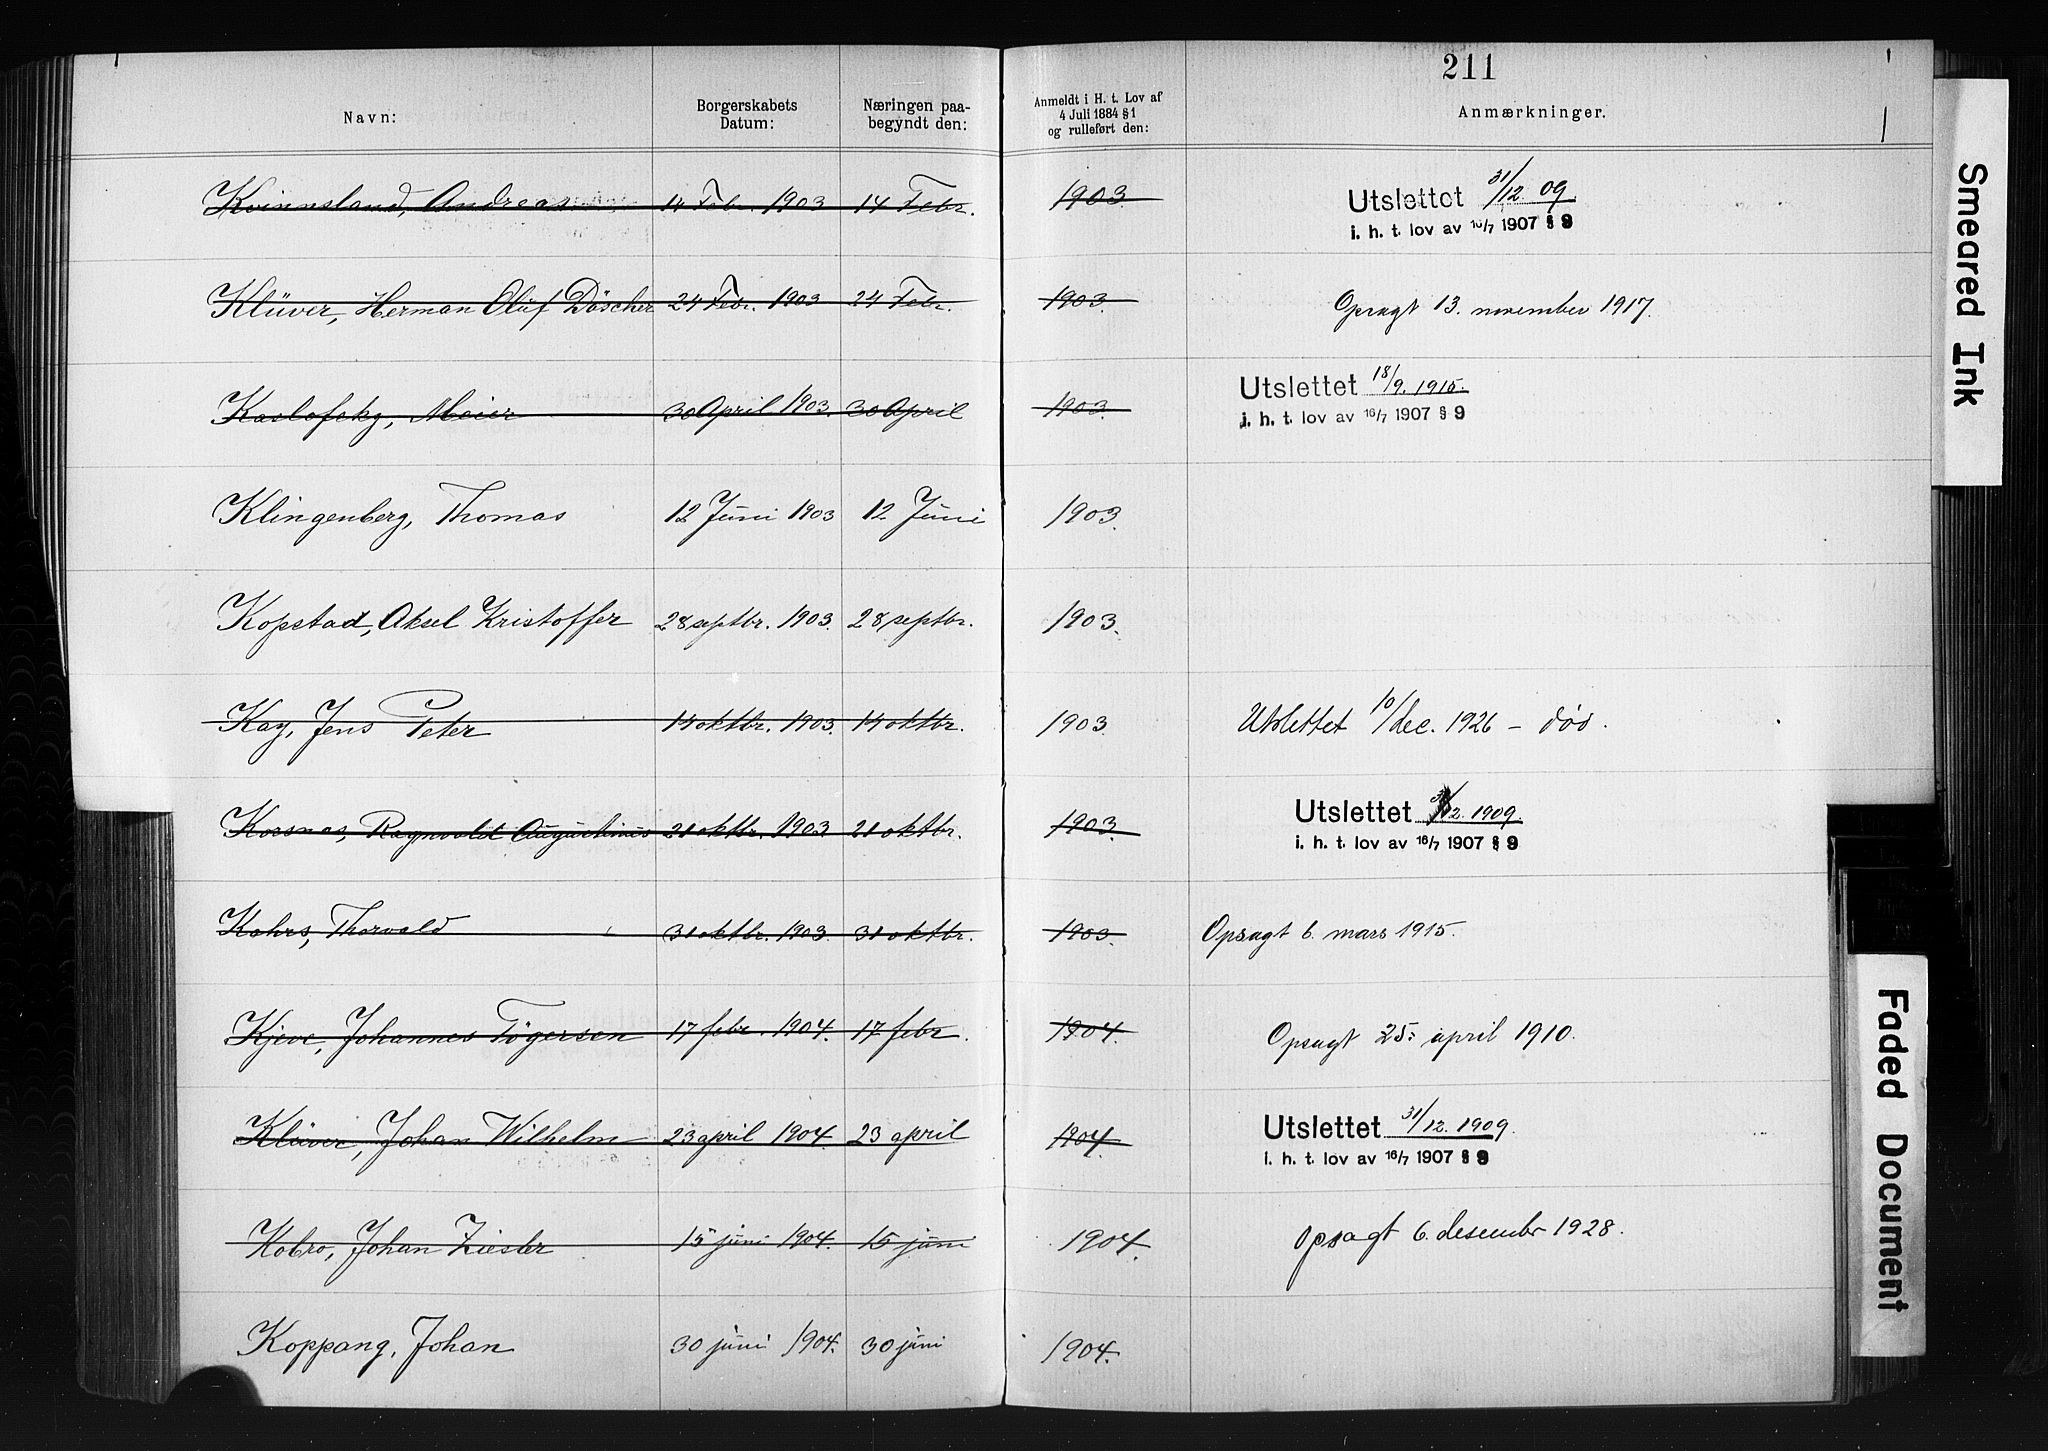 211
Navn: Borgerskabets Datum: Næringen paa-begyndt den: Anmeldt i H. t. Lov af 4 Juli 1884 § 1 og rulleført den: Anmærkninger.
Kvinnsland, Andreas 14 Febr. 1903 14 Febr. 1903. Utslettet 31/12 09
i. h. t. lov av 16/7 1907 § 9
Klüver, Herman Oluf Döscher 24 Febr. 1903 24 Febr. 1903. Opsagt 13. november 1917.
Utslettet 18/9. 1915.
Koslofsky, Meier 30 April 1903. 30 April 1903. i. h. t. lov av 16/7 1907 § 9
Klingenberg, Thomas 12 Juni 1903 12 Juni 1903.
Kopstad, Aksel Kristoffer 28 septbr. 1903. 28 septbr. 1903.
Kay, Jens Peter 14 oktbr. 1903. 14 oktbr. 1903. Utslettet 10/dec. 1926 – død.
Utslettet 31/12. 1909.
Korsnes, Ragnvald Augustinus 21 oktbr. 1903 21 oktbr. 1903. i. h. t. lov av 16/7 1907 § 9
Kahrs, Thorvald 31 oktbr. 1903. 31 oktbr. 1903. Opsagt 6. mars 1915.
Kjeve, Johannes Tögersen 17 febr. 1904. 17 febr. 1904. Opsagt 25. april 1910.
Klüver, Johan Wilhelm 23 april 1904. 23 april 1904. Utslettet 31/12. 1909.
i. h. t. lov av 16/7 1907 § 9
Kobro, Johan Ziesler 15 juni 1904. 15 juni 1904. Opsagt 6. desember 1928.
Koppang, Johan 30 juni 1904. 30 juni 1904.
Smeared Ink
Faded Document